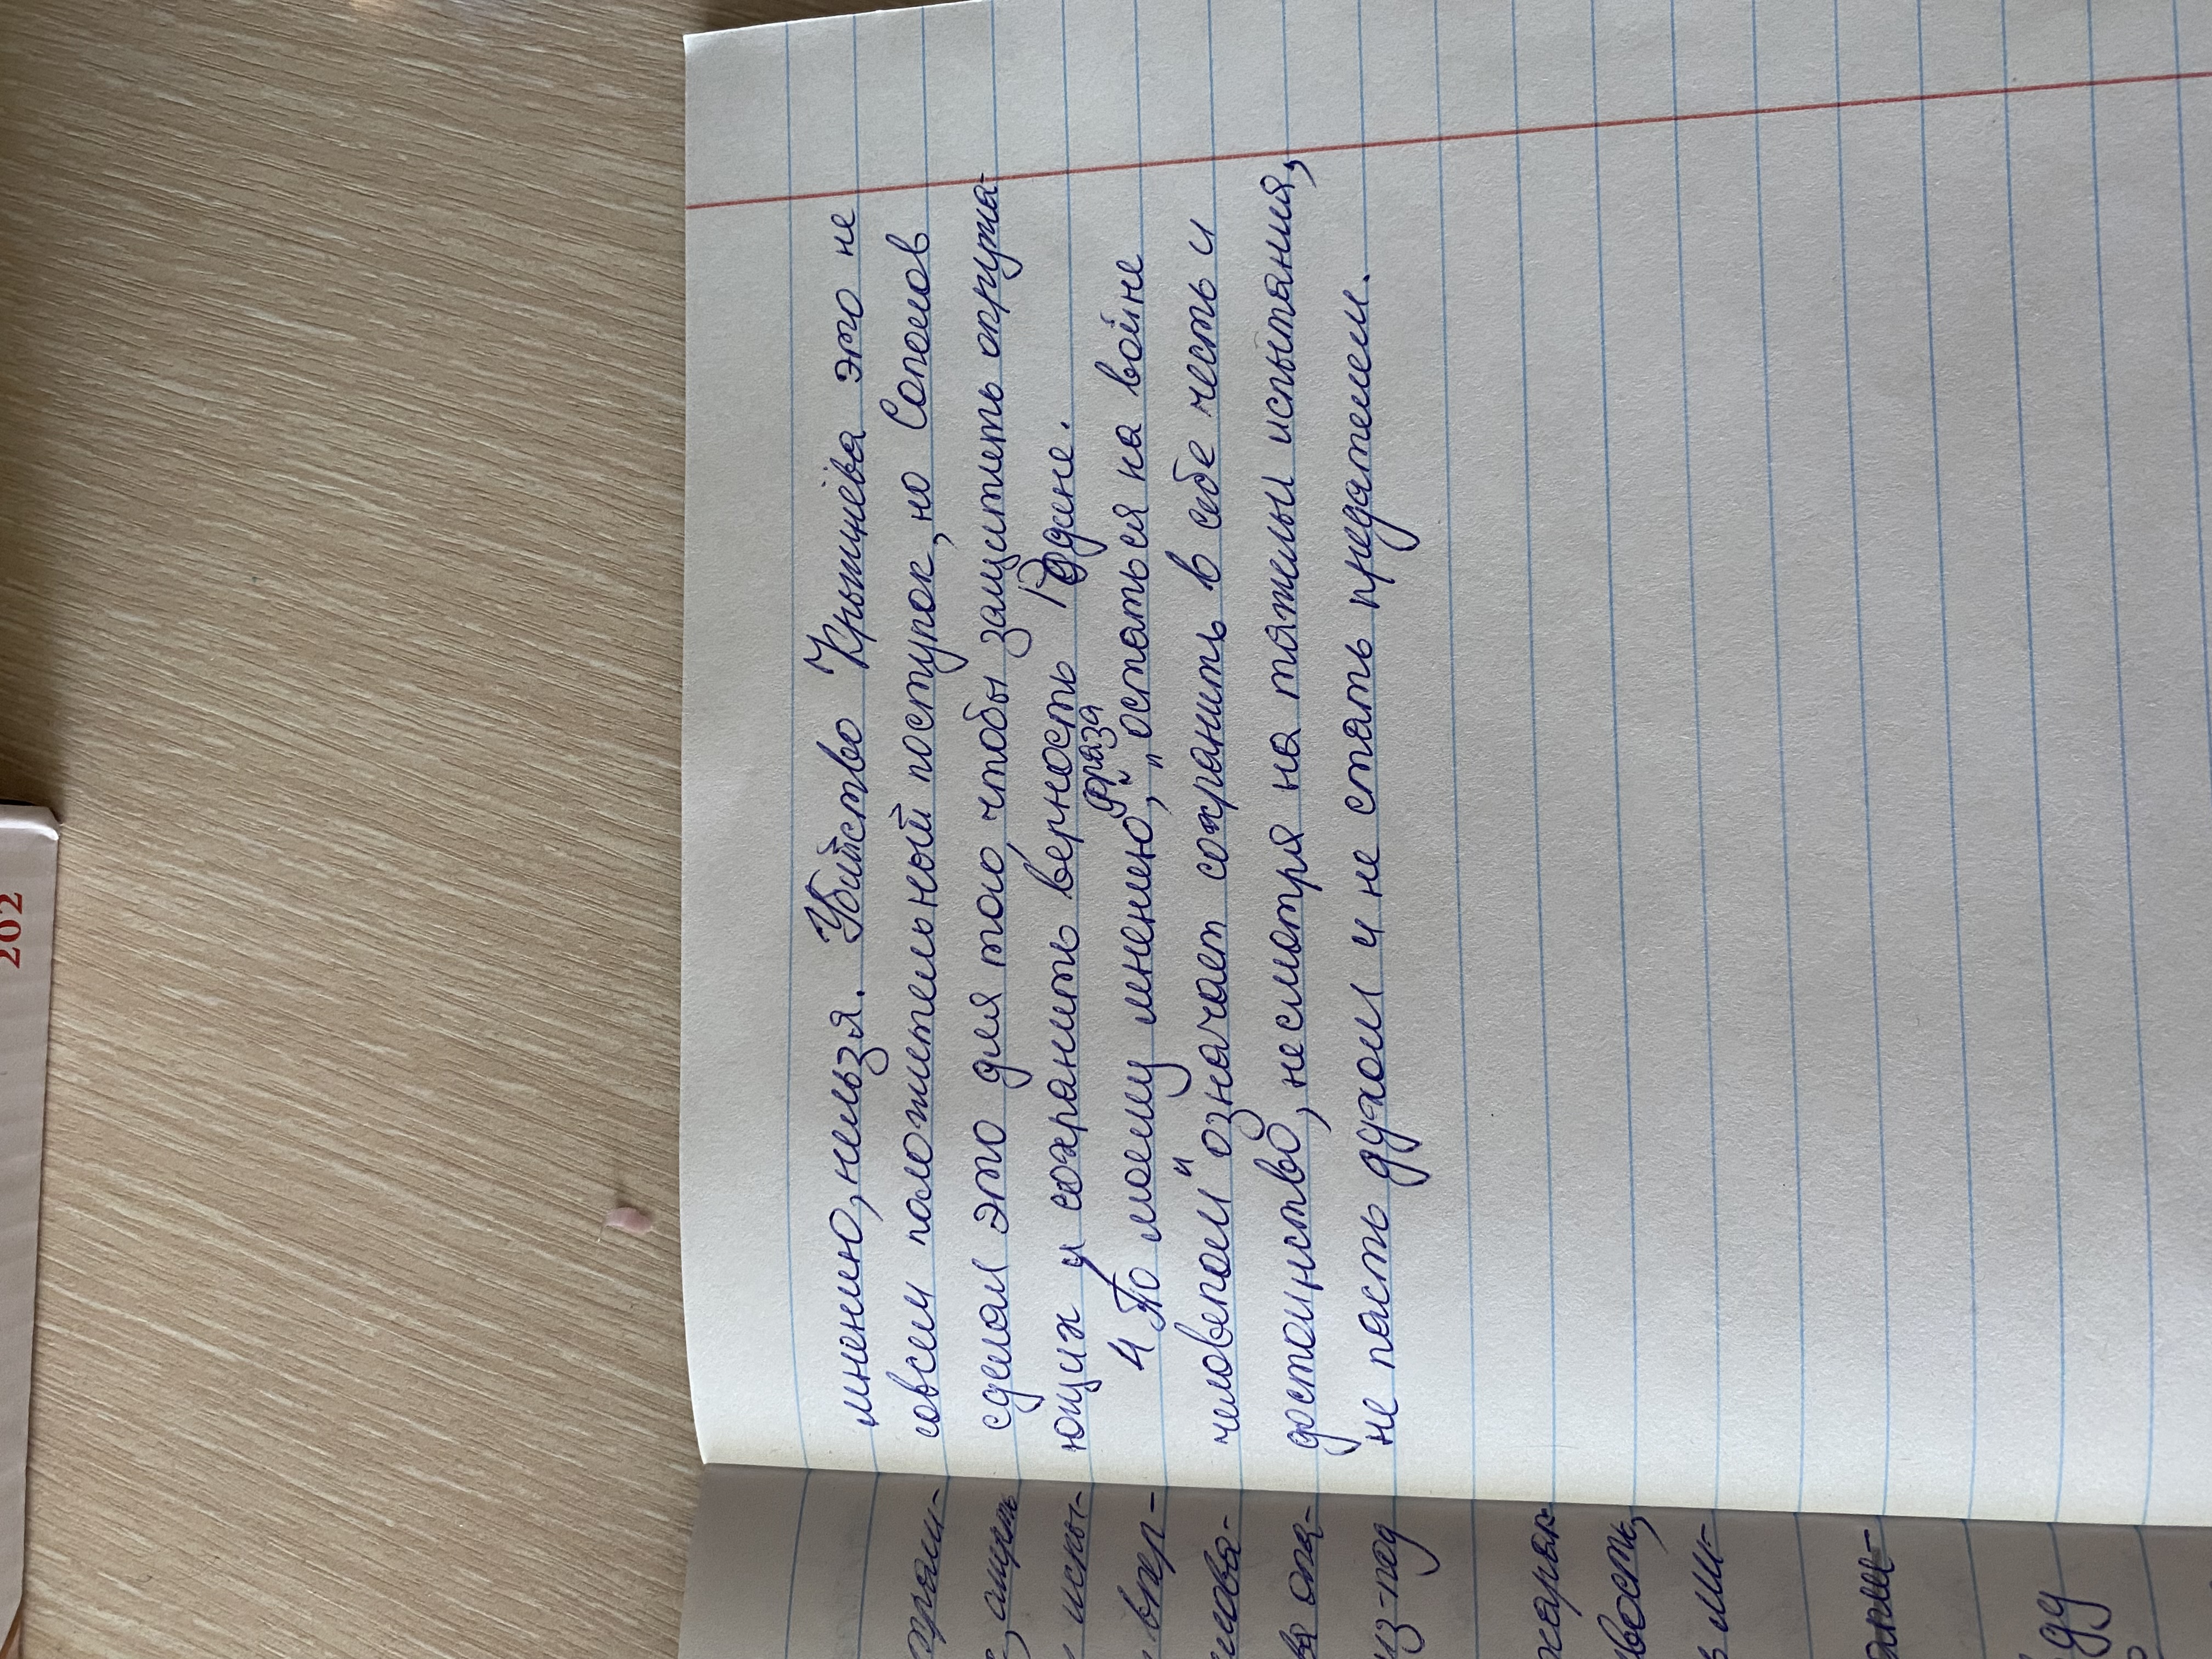 мнению, нельзя. Убийство Крыжнёва это не
совсем положительный поступок, но Соколов
сделал это для того, чтобы защитить окружа-
ющих и сохранить верность Родине.
4 По моему мнению, фраза „остаться на войне
человеком" означает сохранить в себе честь и
достоинство, не смотря на тяжелы испытания,
не пасть духом и не стать предателем.
из-под
вость,
202